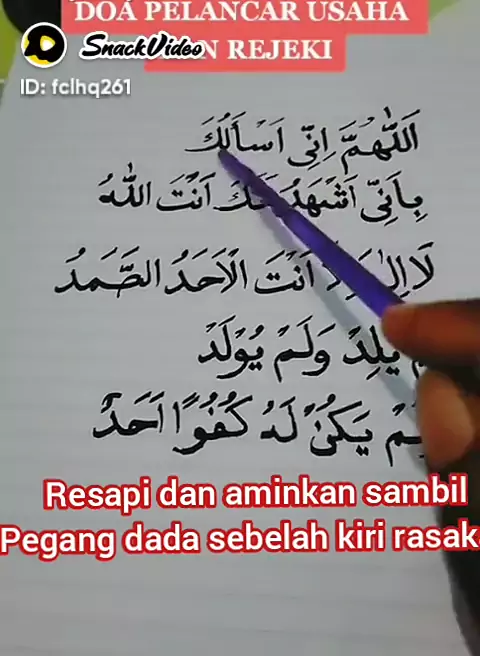 DOA PELANCAR USAHA
REJEKI
SnackVideo
ID: fclhq261
اَللّٰهُمَّ اِنِّى اَسْأَلُكَ
بِاَنِّى اَشْهَدُ اَنْتَ اللّٰهُ
اَنْتَ الْاَحَدُ الصَّمَدُ
يَلِدْ وَلَمْ يُوْلَدْ
يَكُنْ لَهُ كُفُوًا اَحَدٌ
Resapi dan aminkan sambil
Pegang dada sebelah kiri rasak